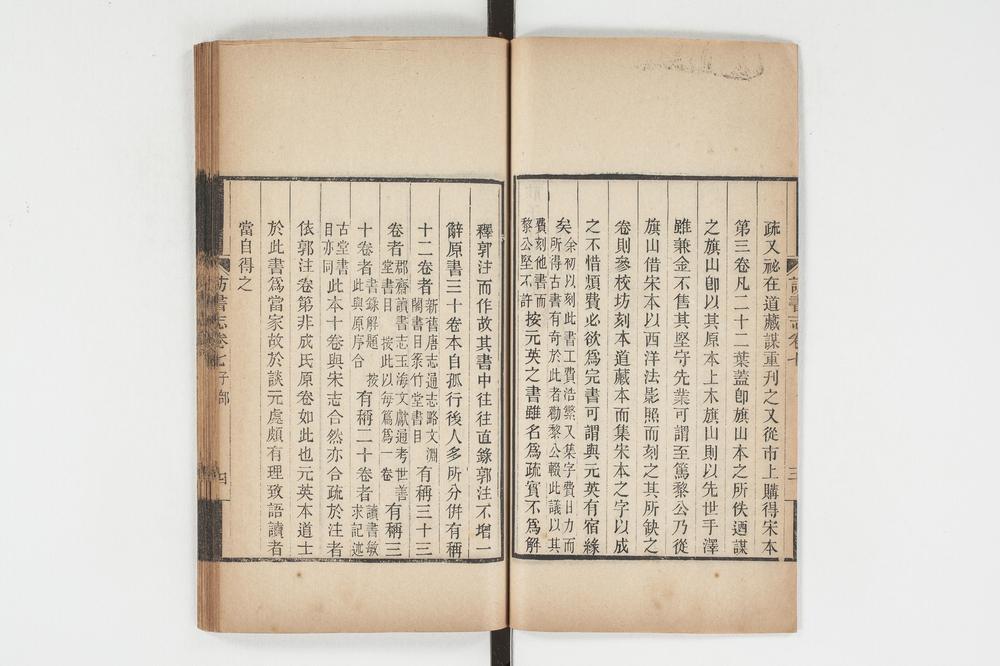 疏又祕在道藏謀重刊之又從市上購得宋本
第三卷凡二十二葉蓋卽旗山本之所佚迺謀
之旗山卽以其原本上木旗山則以先世手澤
雖兼金不售其堅守先業可謂至篤黎公乃從
旗山借宋本以西洋法影照而刻之其所缺之
卷則參校坊刻本道藏本而集宋本之字以成
之不惜煩費必欲爲完書可謂與元英有宿緣
矣余初以刻此書工費浩繁又集字費日力而
所得古書有奇於此者勸黎公輟此議以其
費刻他書而
黎公堅不許按元英之書雖名爲疏實不爲解
訪書志卷七
三
釋郭注而作故其書中往往直錄郭注不增一
辭原書三十卷本自孤行後人多所分併有稱
十二卷者新舊唐志通志略文淵
閣書目菉竹堂書目有稱三十三
卷者郡齋讀書志玉海文獻通考世善
堂書目 按此以每篇爲一卷有稱三
十卷者書錄解題 按
此與原序合有稱二十卷者讀書敏
求記述
古堂書
目亦同此本十卷與宋志合然亦合疏於注者
依郭注卷第非成氏原卷如此也元英本道士
於此書爲當家故於談元處頗有理致語讀者
當自得之
訪書志卷七 子部
四